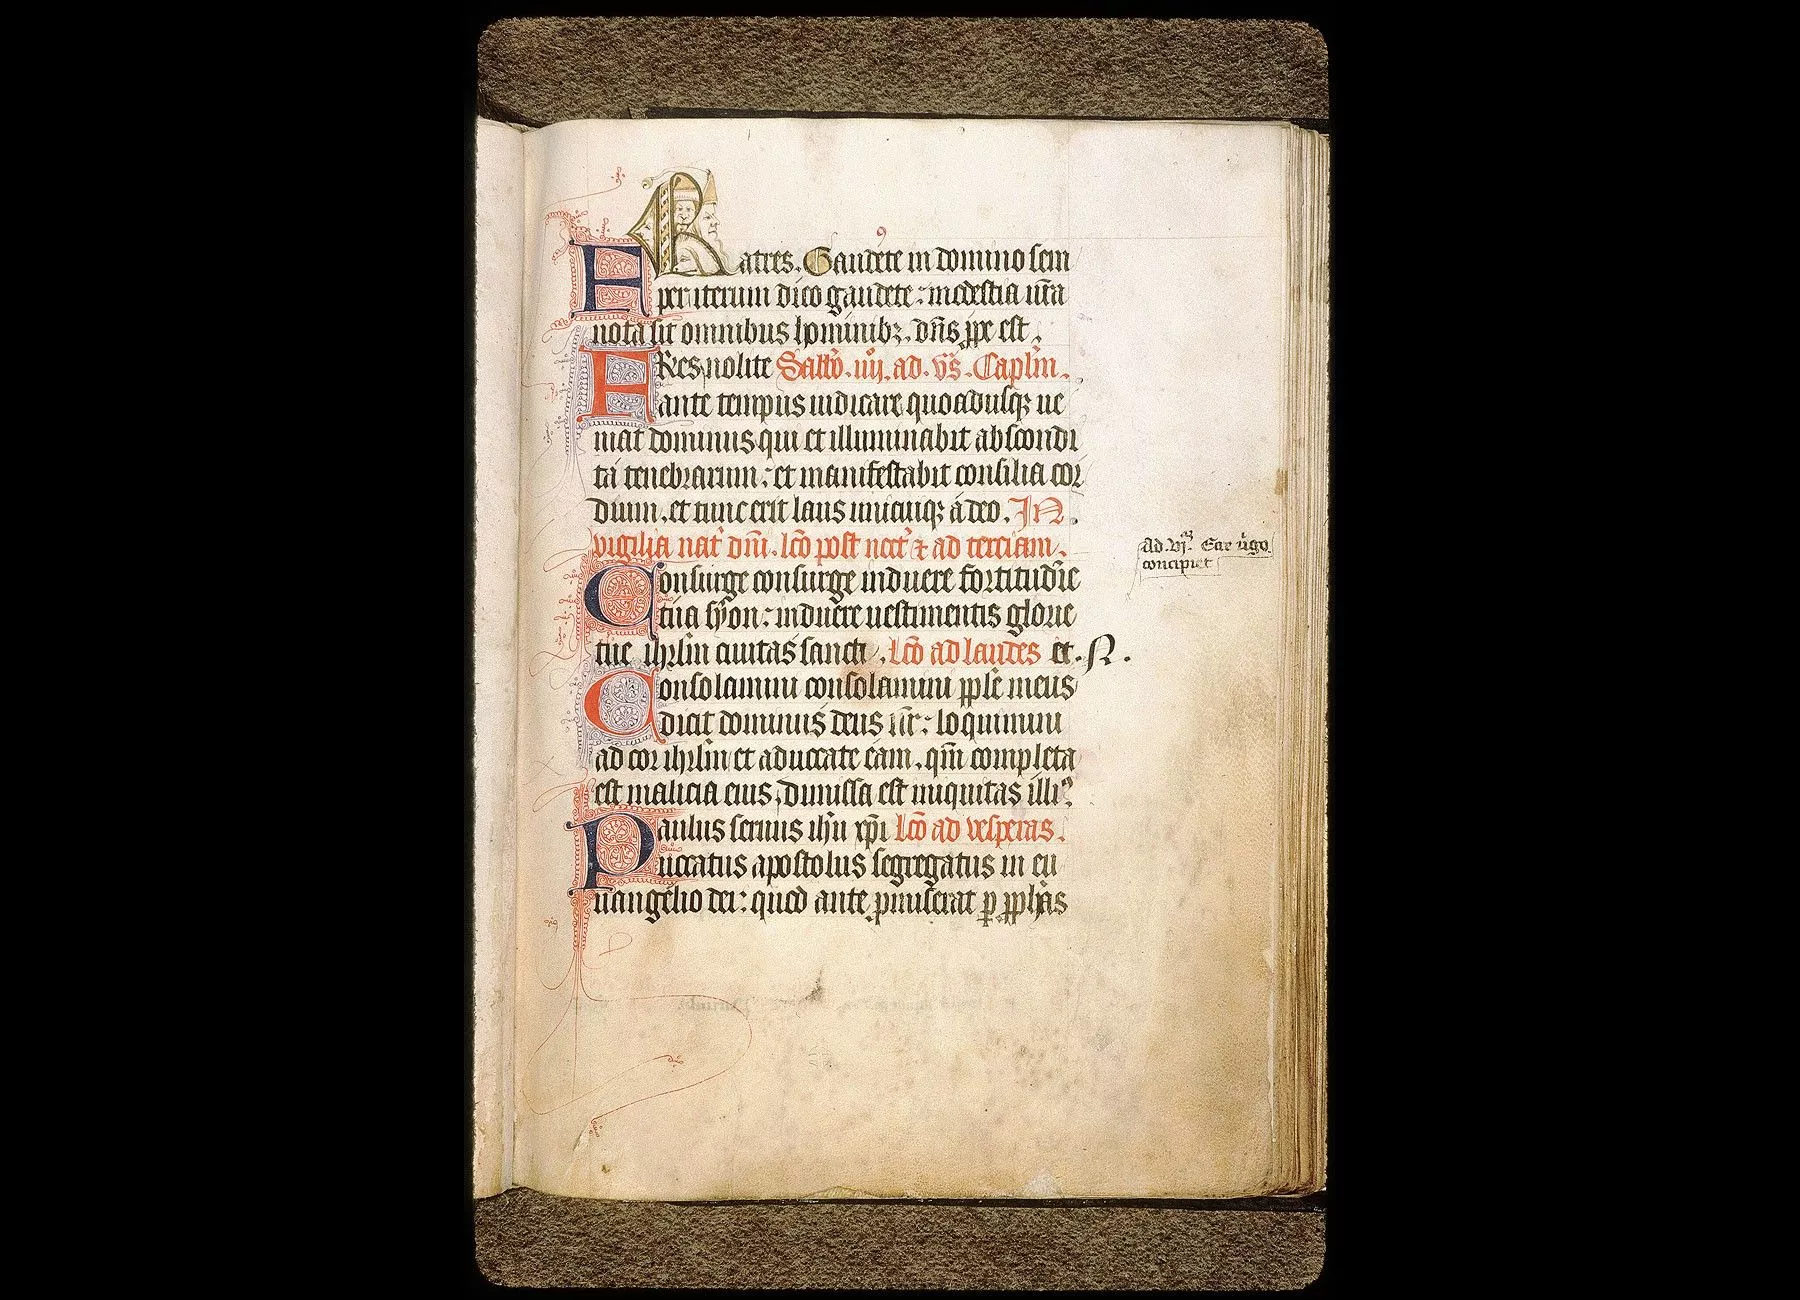 FRatres. Gaudete in domino sem
per iterum dico gaudete : modestia ur̄a
nota sit omnibus hominibꝫ. dn̄s ꝓpe est.
FRes nolite Sabb̄o. iiij. ad. vs̄. Capl̄m.
ante tempus iudicare quoadusqꝫ ue
niat dominus qui et illuminabit abscondi
ta tenebrarum : et manifestabit consilia cor
dium. et tunc erit laus unicuiqꝫ a deo. In
vigilia nat̄ dn̄i. lc̄o post noct̄ ⁊ ad terciam.
Consurge consurge induere fortitudīe
tua syon : induere uestimentis glorie
tue ihrl̄m ciuitas sancti. lc̄o ad laudes et. N.
Consolamini consolamini ppl̄e meus
dicit dominus deus ur̄ : loquimini
ad cor ihrl̄m et aduocate eam. qm̄ completa
est malicia eius, dimissa est iniquitas illiꝰ.
Paulus seruus ih̄u xp̄i lc̄o ad vesperas.
uocatus apostolus segregatus in eu
uangelio dei : quod ante ꝓmiserat ꝑ ꝓph̄as
ad. vi. Ecce uīgo
concipiet